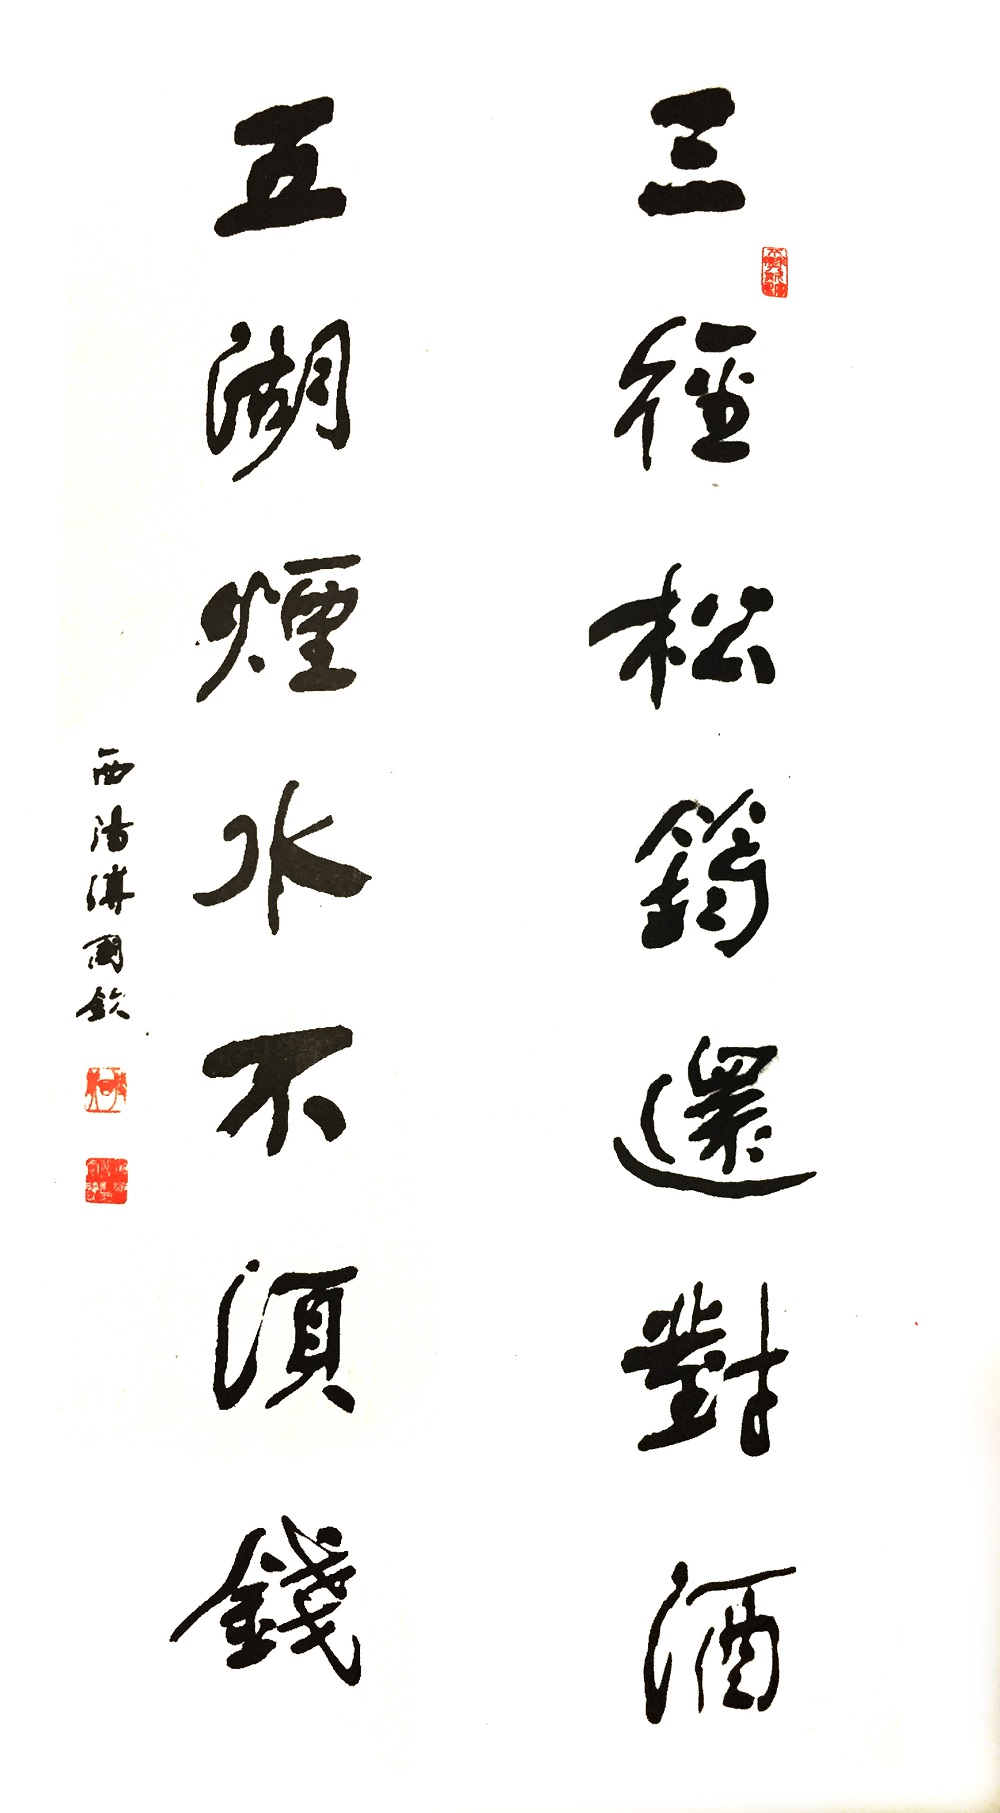 三徑松筠還對酒
五湖煙水不須錢
西湯溥國欽